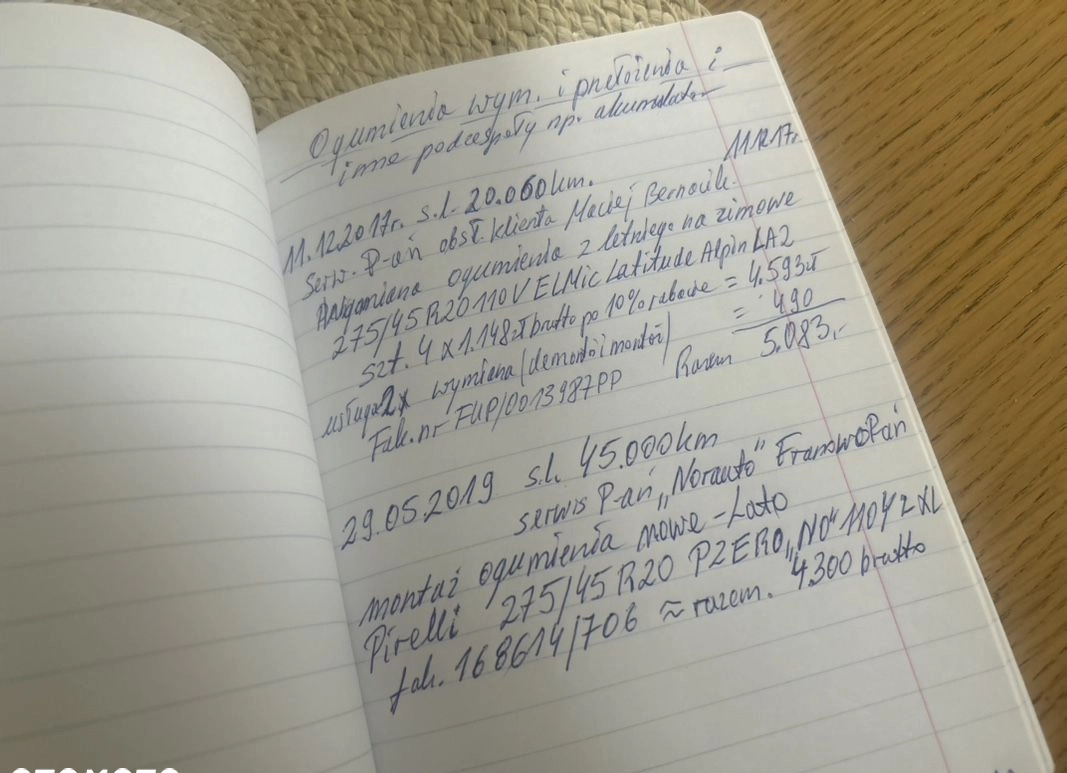 Ogumienia wym. i przełożenia i
inne podzespoły np. akumulator
11.12.17r.
11.12.2017r. s.l. 20.060km.
Serw. P-ań obsł. klienta Maciej Bernacik.
Wymiana ogumienia z letniego na zimowe
275/45 R20 110 V EL Mic Latitude Alpin LA2
szt. 4 x 1.148zł brutto po 10% rabacie = 4.593zł
usługa 2x wymiana /demontaż i montaż/ = 490
Fak. nr FHP/0013987PP Razem 5.083,-
29.05.2019 s.l. 45.000km
serwis P-ań „Norauto" Franowo P-ań
montaż ogumienia nowe - Lato
Pirelli 275/45 R20 PZERO „NO" 110Y z XL
fak. 168614/706 ≈ razem. 4.300 brutto
OTOMOTO